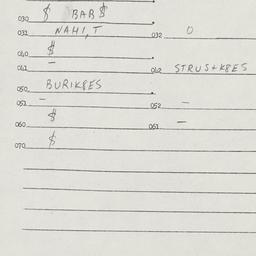 $ BAB$
030
031 NAHI,T 032 O
040 $
041 - 042 STRUS+K8ES
050 BURIK8ES
051 - 052 -
060 $ 061 -
070 $